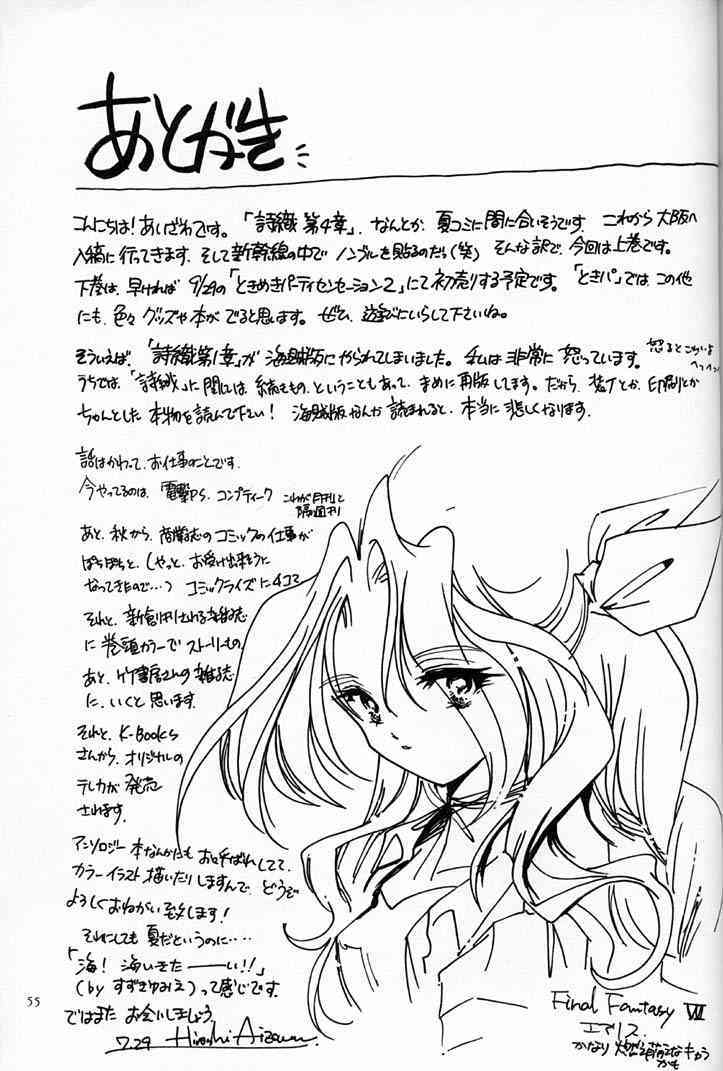 あとがき
こんにちは!あいざわです。「詩織 第4章」、なんとか、夏コミに間に合いそうです。これから大阪へ
入稿に行ってきます。そして新幹線の中でノンブルを貼るのだぅ(笑) そんな訳で、今回は上巻です。
下巻は、早ければ 9/29の「ときめきパーティセンセーション2」にて初売りする予定です。「ときパ」では、この他
にも、色々グッズや本がでると思います。ぜひ、遊びにいらして下さいね。
そういえば、「詩織第1章」が海賊版にやられてしまいました。私は非常に怒っています。
怒るとこわいよ
へっへっへっ
うちでは、「詩織」に関しては、続きもの、ということもあって、まめに再版します。だから、とか、印刷とか
ちゃんとした本物を読んで下さい! 海賊版なんか読まれると、本当に悲しくなります。
話はかわって、お仕事のことです。
今やってるのは、電撃PS、コンプティーク
これが月刊と
隔週刊
あと、秋から、商業誌のコミックの仕事が
ぼちぼちと、(やっと、お受け出来そうに
なってきたので…) コミックライズに4コマ
それと、新創刊される雑誌
に巻頭カラーでストーリーもの
あと、竹書房さんの雑誌
に、いくと思います。
それと、K-Books
さんから、オリジナルの
テレカが発売
されます。
アンソロジー本なんかにも お呼ばれしてて、
カラーイラスト描いたりしますんで、どうぞ
よろしくおねがい致します!
それにしても夏だというのに‥‥
「海!海いきたーーい!!」
(by すずきゆみえ)って感じです。
ではまた お会いしましょう
7.29 Hiroshi Aizawa.
Final Fantasy VII
エアリス.
かなり 燃え萌なキャラ
かも
55